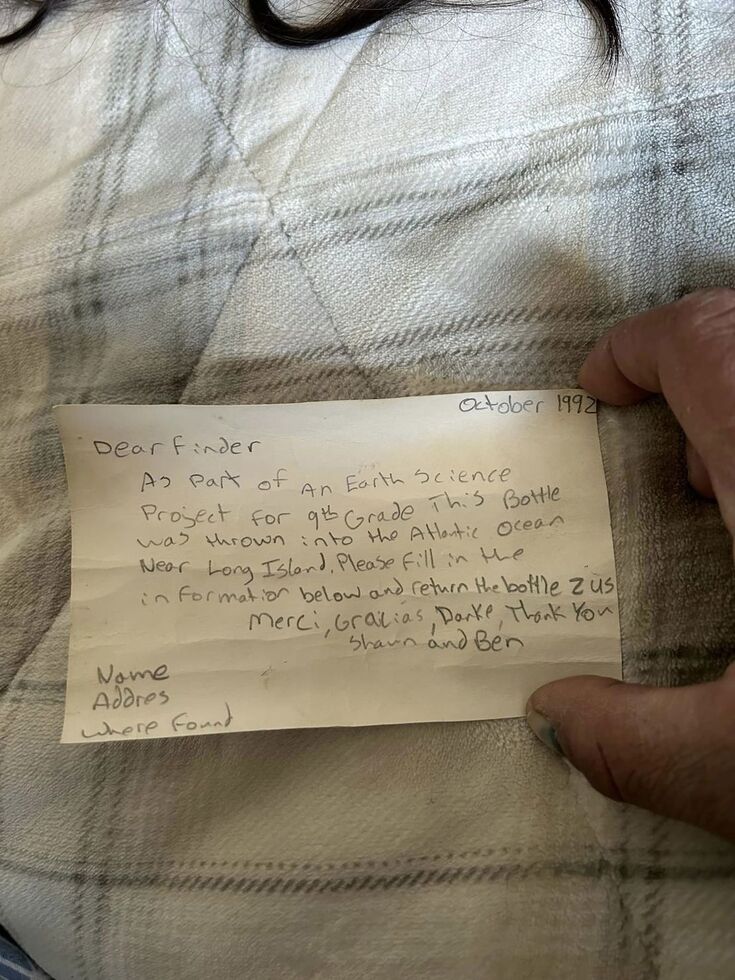 October 1992
Dear Finder
As Part of An Earth Science
Project for 9th Grade This Bottle
was thrown into the Atlantic Ocean
Near Long Island. Please fill in the
information below and return the bottle 2 us
Merci, Gracias, Danke, Thank You
Shawn and Ben
Name
Addres
Where Found